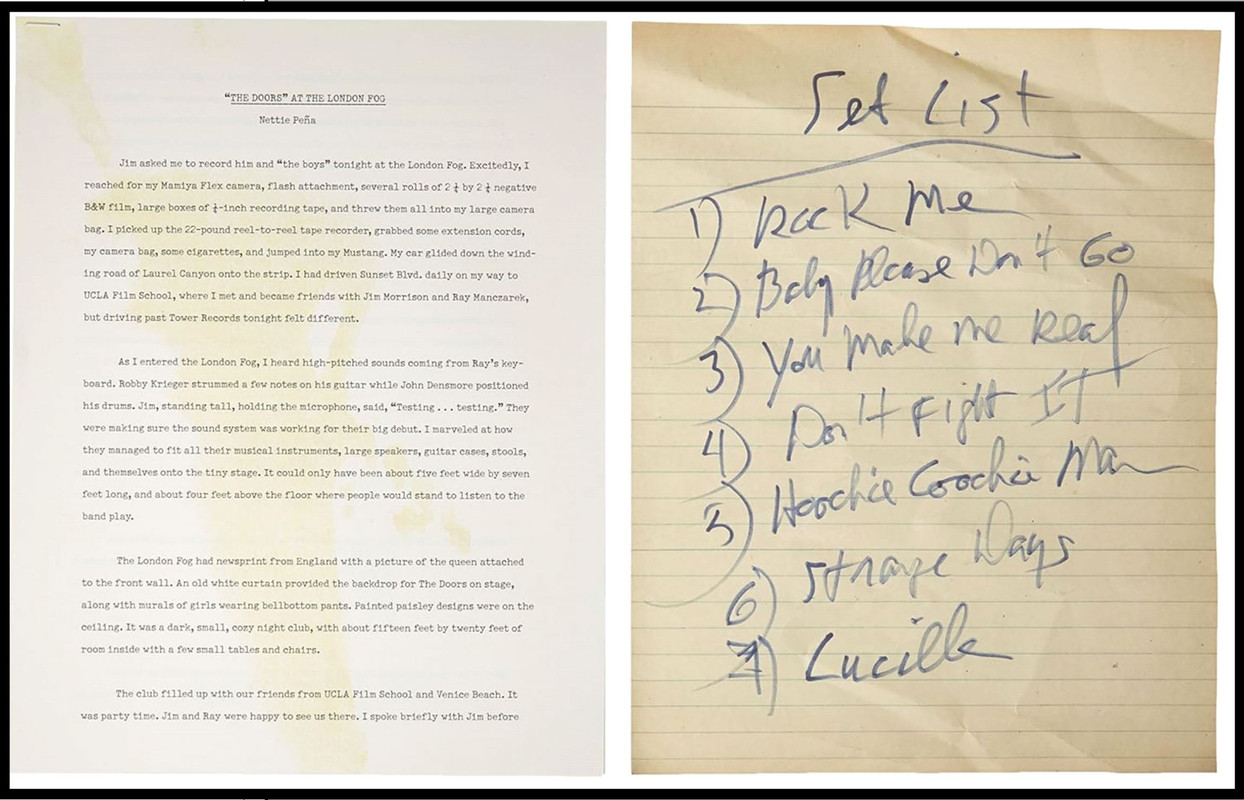 “THE DOORS” AT THE LONDON FOG
Nettie Peña
Jim asked me to record him and “the boys” tonight at the London Fog. Excitedly, I
reached for my Mamiya Flex camera, flash attachment, several rolls of 2 ¼ by 2 ¼ negative
B&W film, large boxes of ¼-inch recording tape, and threw them all into my large camera
bag. I picked up the 22-pound reel-to-reel tape recorder, grabbed some extension cords,
my camera bag, some cigarettes, and jumped into my Mustang. My car glided down the wind-
ing road of Laurel Canyon onto the strip. I had driven Sunset Blvd. daily on my way to
UCLA Film School, where I met and became friends with Jim Morrison and Ray Manczarek,
but driving past Tower Records tonight felt different.
As I entered the London Fog, I heard high-pitched sounds coming from Ray’s key-
board. Robby Krieger strummed a few notes on his guitar while John Densmore positioned
his drums. Jim, standing tall, holding the microphone, said, “Testing . . . testing.” They
were making sure the sound system was working for their big debut. I marveled at how
they managed to fit all their musical instruments, large speakers, guitar cases, stools,
and themselves onto the tiny stage. It could only have been about five feet wide by seven
feet long, and about four feet above the floor where people would stand to listen to the
band play.
The London Fog had newsprint from England with a picture of the queen attached
to the front wall. An old white curtain provided the backdrop for The Doors on stage,
along with murals of girls wearing bellbottom pants. Painted paisley designs were on the
ceiling. It was a dark, small, cozy night club, with about fifteen feet by twenty feet of
room inside with a few small tables and chairs.
The club filled up with our friends from UCLA Film School and Venice Beach. It
was party time. Jim and Ray were happy to see us there. I spoke briefly with Jim before
Set List
1) Rock Me
2) Baby Please Don't Go
3) You Make Me Real
4) Don't Fight It
5) Hoochie Coochie Man
6) Strange Days
7) Lucille